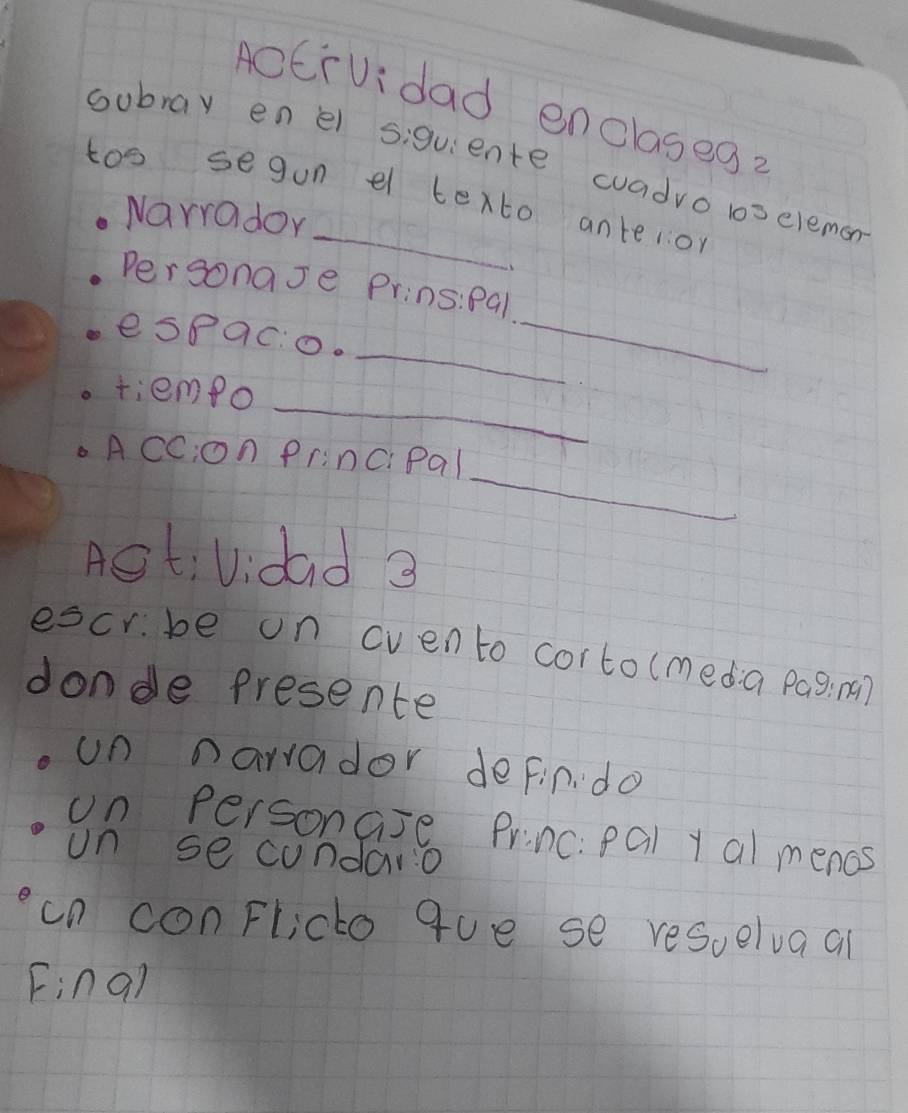 Actividad en clases 2
subray en el siguiente cuadro los elemen
tos segun el texto anterior
• Narrador ________.
• Personaje Prinsipal. ________
• espacio. ________.
• tiempo ________
• Accion Principal ________
Actividad 3
escribe un cuento corto (media pagina)
donde presente
• un narrador definido
• un Personaje Principal y al menos
un secundario
• un conflicto que se resuelva al
Final